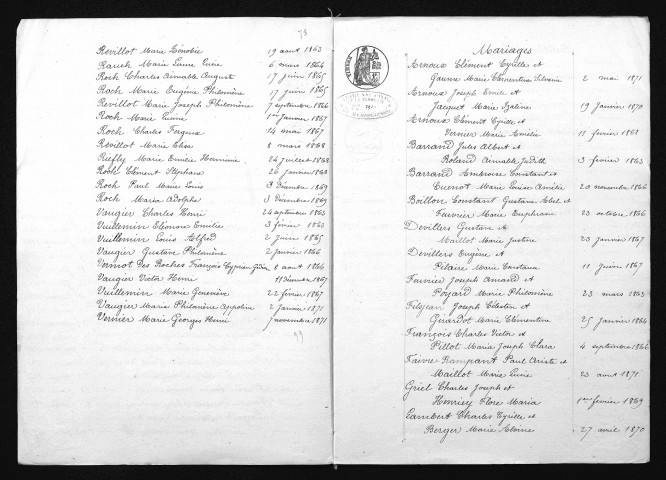 78
Revillot Marie Zénobie 19 août 1863
Rauch Marie Lucie 6 mars 1864
Roch Charles Aimable August 17 juin 1865
Roch Marie Eugénie Philomène 17 juin 1865
Revillot Marie Joseph Philomène 7 septembre 1866
Roch Marie 1er janvier 1867
Roch Charles 14 mai 1867
Revillot Marie Elisa 8 mars 1868
Riefly Marie Emélie Herminie 24 juillet 1868
Roch Clément Stéphane 26 janvier 1868
Roch Paul Marie Louis 3 Décembre 1869
Roch Maria Adolphe 3 Décembre 1869
Vaugier Charles Henri 24 septembre 1863
Vuillemin Eléonore Emilie 3 février 1863
Vuillemin Louis Alfred 2 juin 1865
Vaugier Gustave Philomène 2 janvier 1866
Vernot Des Roches François Cyprien 8 août 1866
Vaugier Victor Henri 11 Décembre 1867
Vuillemin Marie Geneviève 22 février 1867
Vaugier Marie Philomène Appoline 2 janvier 1871
Vernier Marie Georges Henri novembre 1871
99
Mariages
Arnoux Clément Cyrille et
Gaume Marie Clémentine Silvanie 2 mai 1871
Arnoux Joseph Emile et
Jacquot Marie 19 Janvier 1870
Arnoux Clément Cyrille et
Vernier Marie Amélie 11 février 1868
Barrand Jules Albert et
Roland Aimable Judith 3 février 1863
Barrand Ambroise Constant et
Cuenot Marie Louise Amélie 20 novembre 1866
Boillon Constant Gustave Abel et
Feuvrier Marie Euphrasie 23 octobre 1866
Devillers Gustave et
Maillot Marie Justine 23 janvier 1867
Devillers Eugène et
Pilaire Marie Constance 11 Juin 1867
Feuvrier Joseph Amand et
Poyard Marie Philomène 23 mars 1863
Filsjean Joseph Célestin et
Girardot Marie Clémentine 25 janvier 1864
François Charles Victor et
Pillot Maria Joseph Clara 4 septembre 1866
Faivre Rampant Paul Ariste et
Maillot Marie Lucie 23 août 1871
Griel Charles Joseph et
Henriey Flore Maria 1er février 1869
Lambert Charles Cyrille et
Berger Marie 27 avril 1870